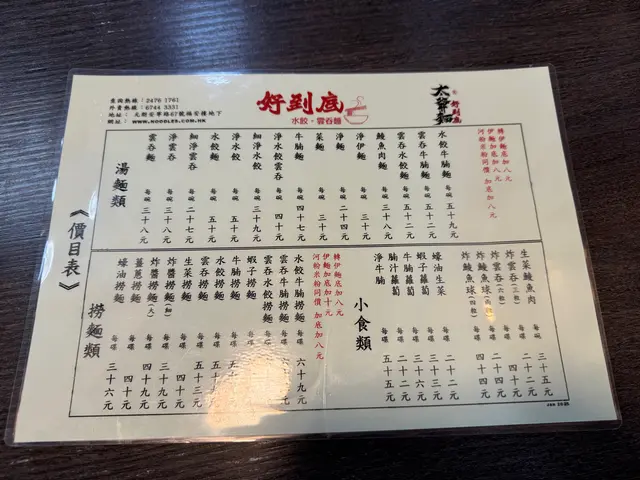 查詢熱線：2476 1761
外賣熱線：6744 3331
地址：元朗安寧路67號福安樓地下
網址：WWW.NOODLES.COM.HK
好到底
水餃・雲吞麵
好到底
《價目表》
湯麵類
雲吞麵 每碗 三十八元
淨雲吞 每碗
細淨雲吞 每碗 二十七元
水餃麵 每碗 五十元
淨水餃 每碗 五十元
細淨水餃 每碗 三十九元
淨水餃雲吞 每碗 四十元
牛腩麵 每碗 四十七元
菜麵 每碗 三十元
淨麵 每碗 三十元
淨伊麵 每碗 三十元
鯪魚肉麵 每碗 三十八元
雲吞水餃麵 每碗 五十元
雲吞牛腩麵 每碗 五十二元
水餃牛腩麵 每碗 五十九元
轉伊麵加八元
伊麵加底加八元
河粉米粉同價 加底加八元
撈麵類
蠔油撈麵 每碟 三十六元
薑蔥撈麵 每碟
炸醬撈麵(大) 每碟
炸醬撈麵(細) 每碟
生菜撈麵 每碟
雲吞撈麵 每碟
水餃撈麵 每碟
牛腩撈麵 每碟
蝦子撈麵 每碟
雲吞水餃撈麵 每碟
雲吞牛腩撈麵 每碟
水餃牛腩撈麵 每碟 六十九元
轉伊麵加八元
伊麵加底加十元
河粉米粉同價 加底加八元
小食類
淨牛腩 每碟 五十五元
腩汁蘿蔔 每碟 二十二元
牛腩蘿蔔 每碟
蝦子蘿蔔 每碟
蠔油生菜 每碟 二十二元
炸鯪魚球(四粒) 每碟
炸鯪魚球 每碟
炸雲吞(六粒) 每碟
炸雲吞(三粒) 每碟 二十二元
生菜鯪魚肉 每碗 三十五元